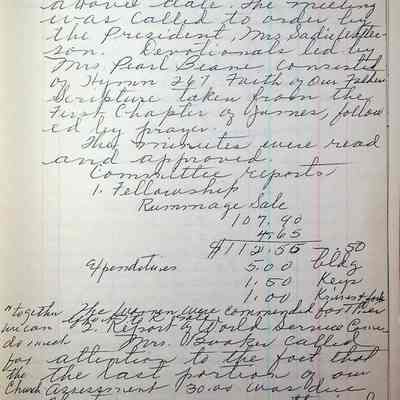 above date. The meeting
was called to order by
the President, Mrs. Sadie
son. Devotionals led by
Mrs. Pearl Beane consisted
of Hymn 267. Faith of Our Father
Scripture taken from the
First Chapter of James, follow
ed by prayer.
The minutes were read
and approved.
Committee reports
1. Fellowship
Rummage Sale
107.90
4.65
$112.55 — 7.50
Expenditures 5.00 bldg
1.50 Keys
1.00 Knives &
The women were commended for their
"together
we can
do much
for
the
Church
2. Report by World Service
Mrs. Booker called
attention to the fact that
the last portion of our
assessment 30.00 was due